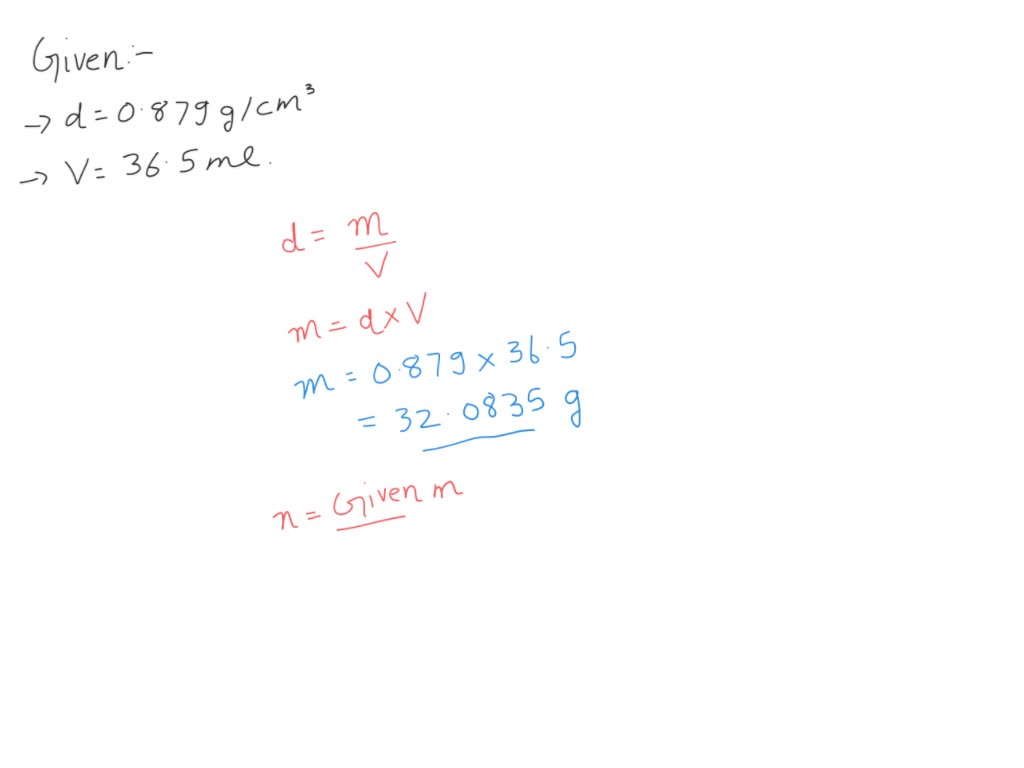 Given:-
→ d = 0.879 g/cm³
→ V = 36.5 ml.
d = m/V
m = d×V
m = 0.879 × 36.5
= 32.0835 g
n = Given m